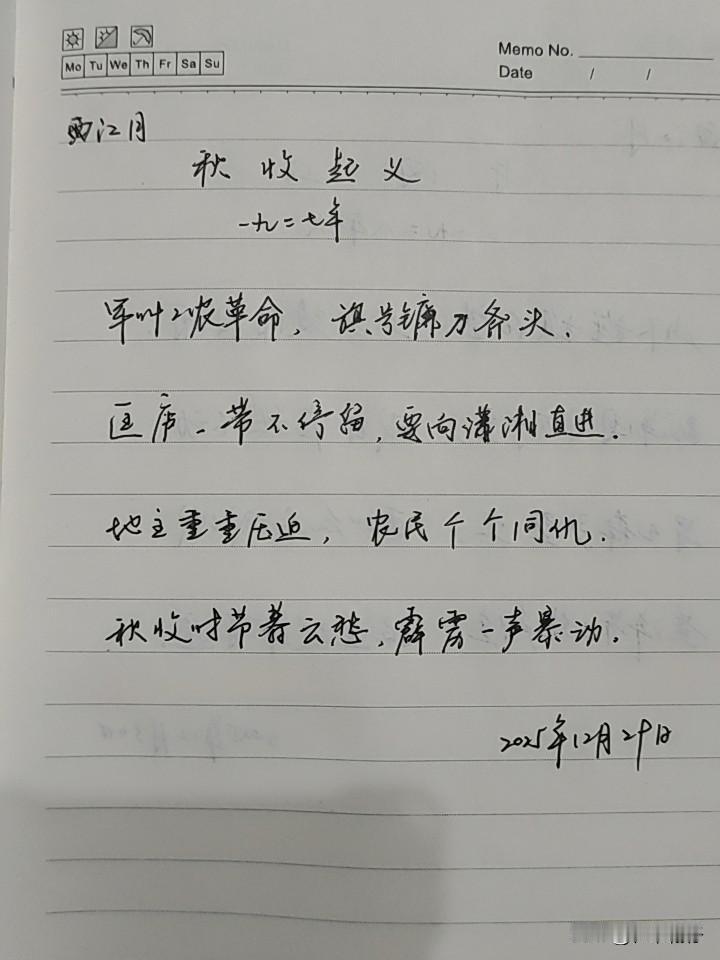 Memo No.
Mo Tu We Th Fr Sa Su
Date / /
西江月
秋收起义
一九二七年
军叫工农革命，旗号镰刀斧头．
匡庐一带不停留，要向潇湘直进．
地主重重压迫，农民个个同仇．
秋收时节暮云愁，霹雳一声暴动．
2025年12月29日